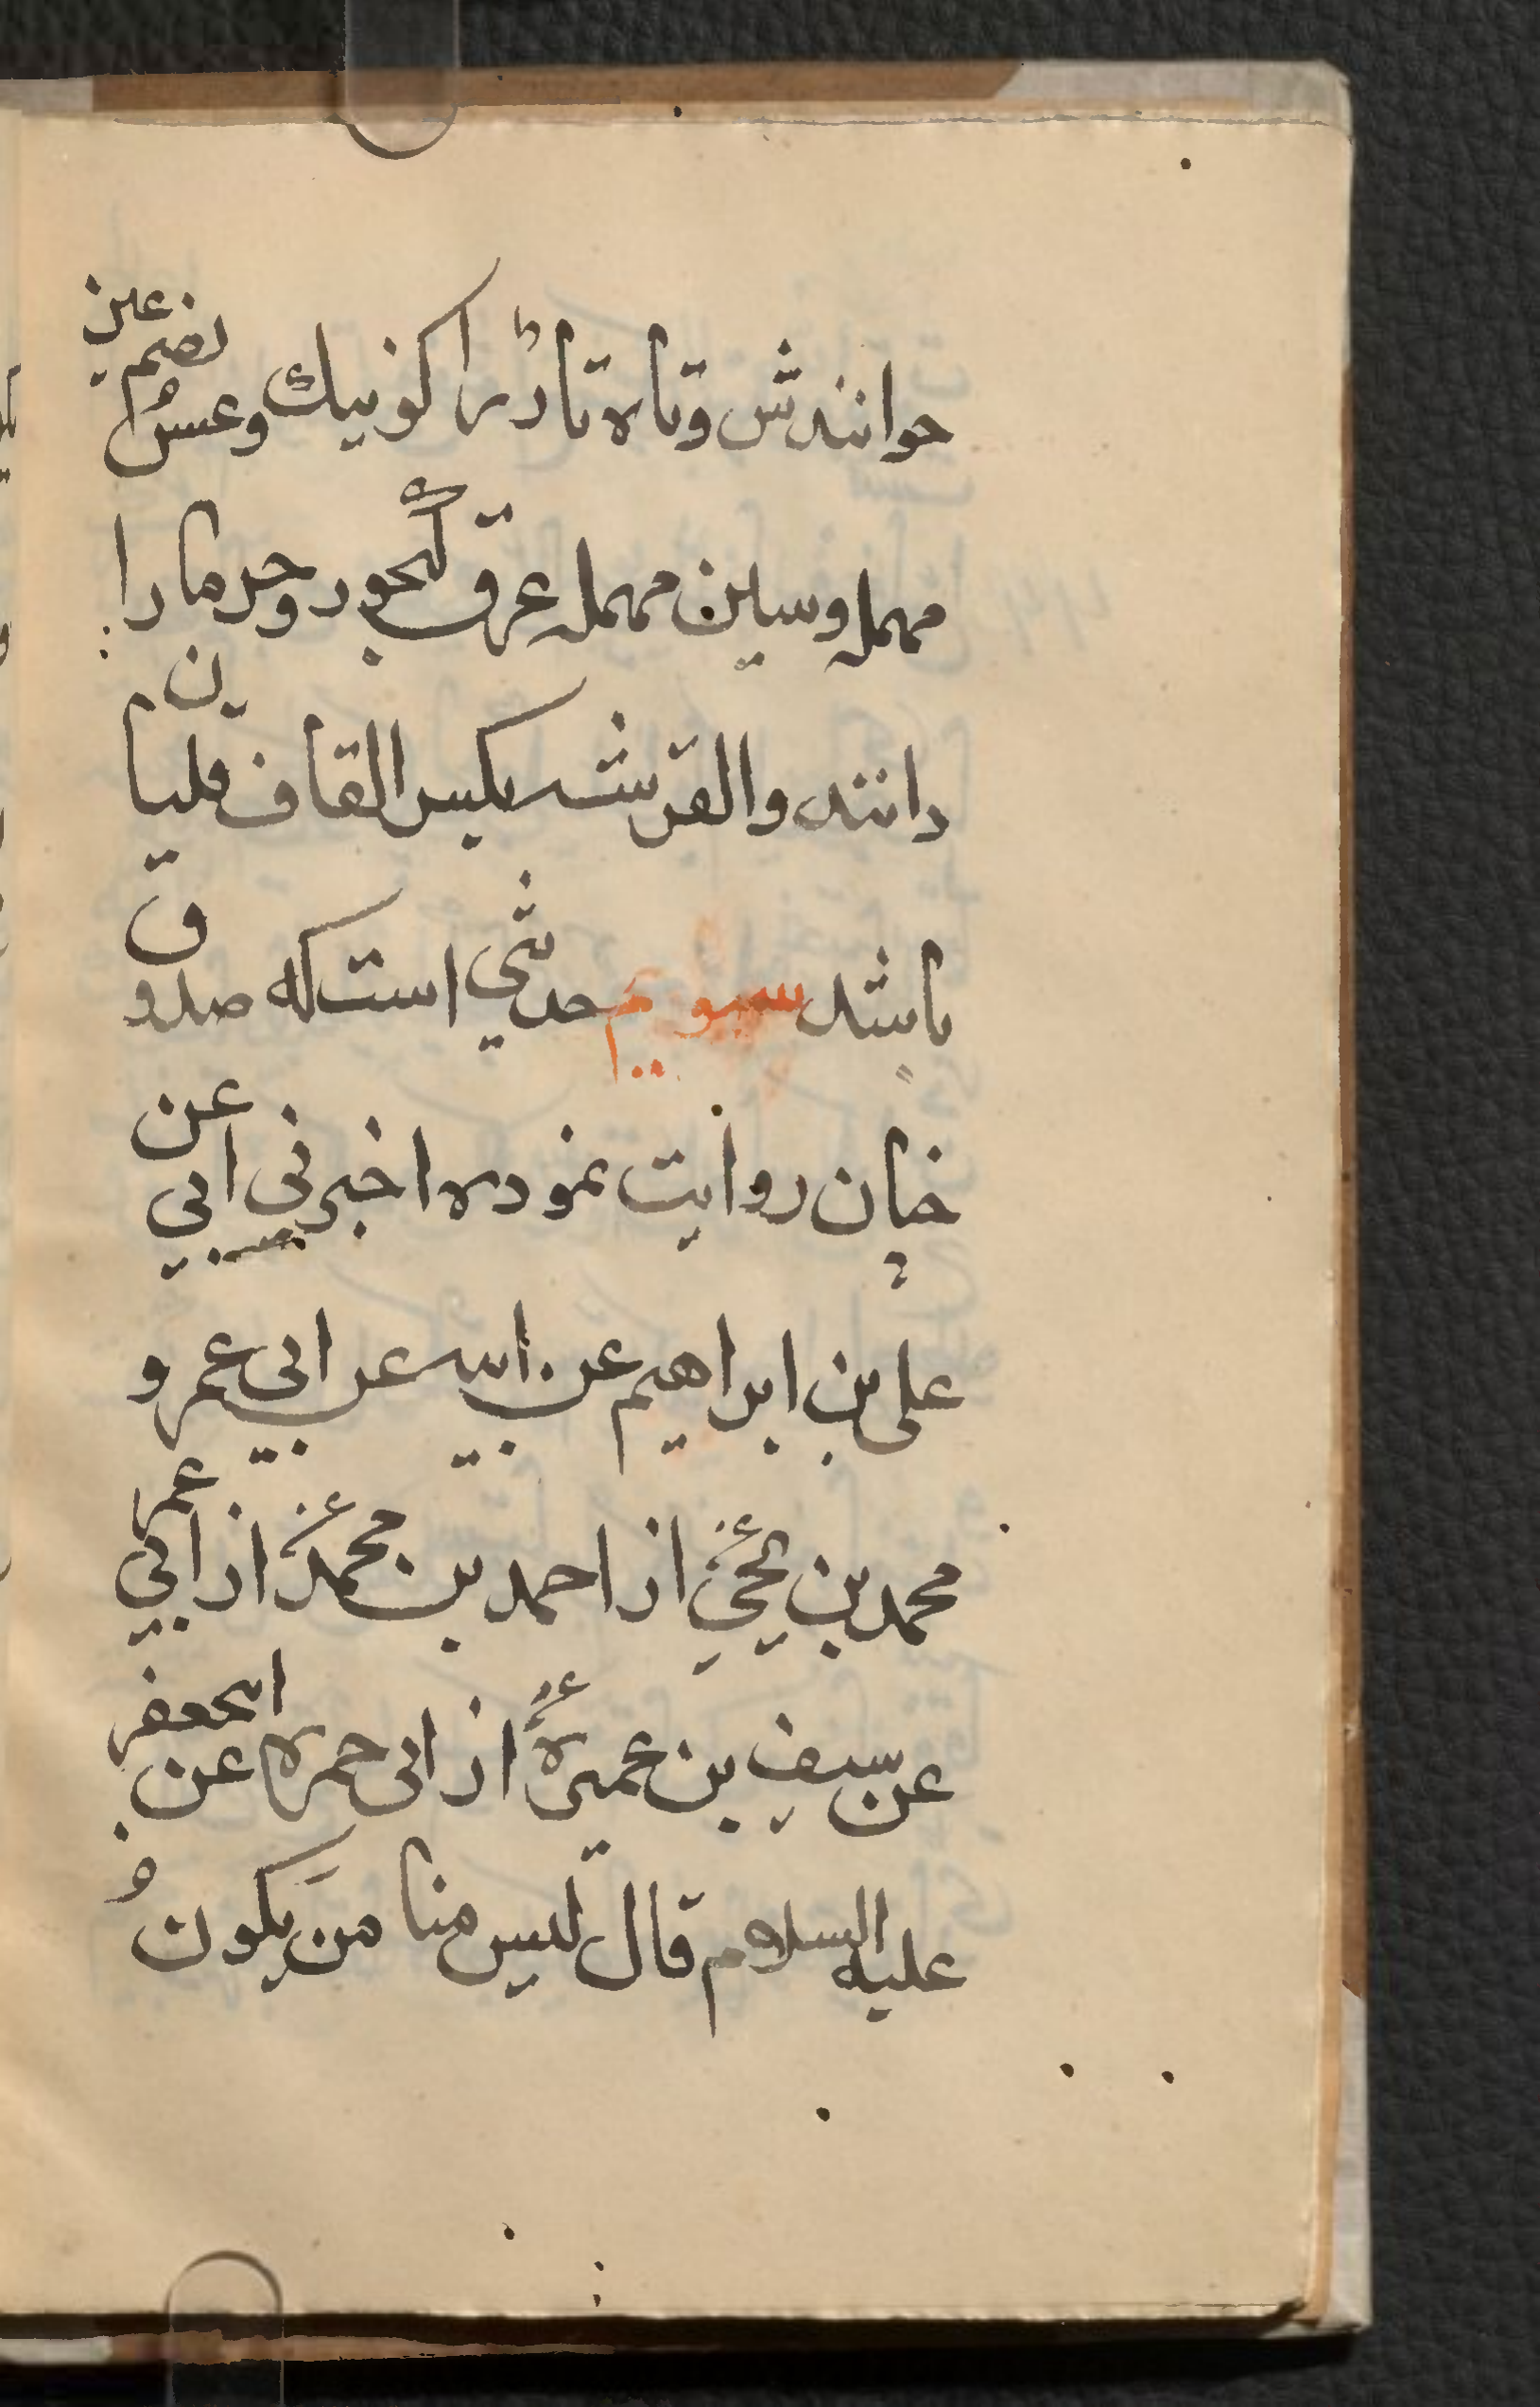 خوانندش وتاه تا درا کونیك وعسُ بضم عین
مهمله وسین مهمله عرق کجور وخرمارا
دانند والقرشه بکسر القاف قلیان
باشد سیویم حدیثی است که صدوق
خپان روایت نموده اخبرنی ابی عن
علی بن ابراهیم عن ابیه عن ابی عمرو
محمد بن یحیی از احمد بن محمد از ابی عمر
عن سیف بن عمیرة از ابی حمزه عن ابیجعفر
علیه السلام قال لیس منا مَن یکونُ